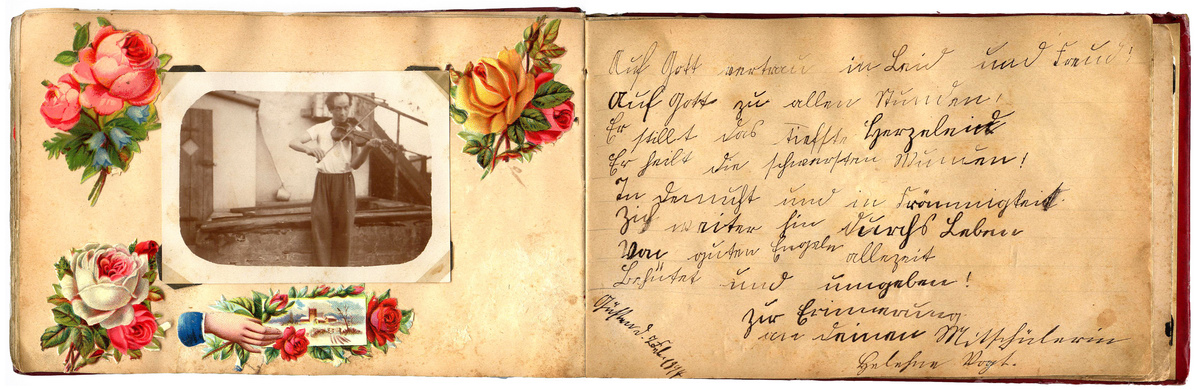 Auf Gott vertrau in Leid und Freud!
Auf Gott zu allen Stunden!
Er stillt das tiefste Herzeleid
Er heilt die schwersten Wunden!
In Demuth und in Frömmigkeit
Zieh weiter hin durchs Leben
Von guten Engeln allezeit
Behütet und umgeben!
Zur Erinnerung
an deinen Mitschülerin
Helehne Vogt.